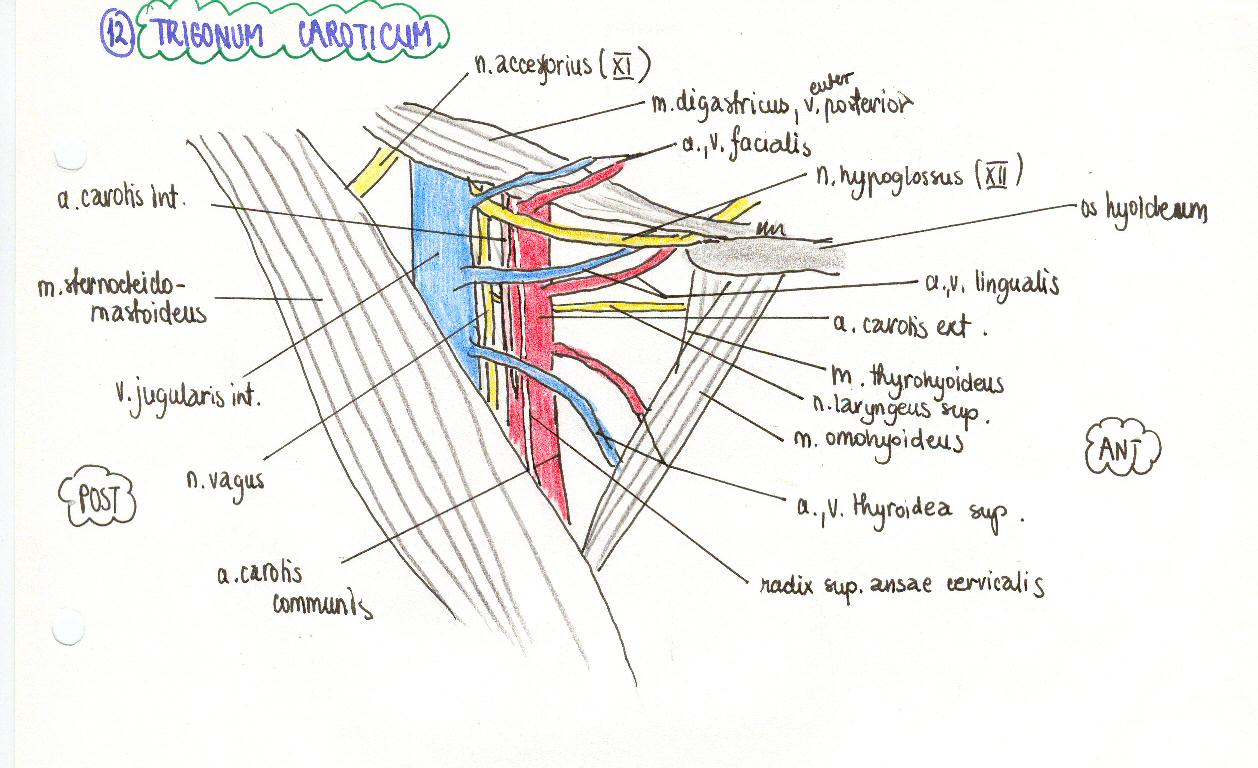 12 TRIGONUM CAROTICUM
n. accessorius (XI)
m. digastricus, venter posterior
a., v. facialis
n. hypoglossus (XII)
os hyoideum
a. carotis int.
a., v. lingualis
m. sternocleido-
mastoideus
a. carotis ext.
m. thyrohyoideus
v. jugularis int.
n. laryngeus sup.
m. omohyoideus
ANT
n. vagus
POST
a., v. thyroidea sup.
a. carotis
communis
radix sup. ansae cervicalis